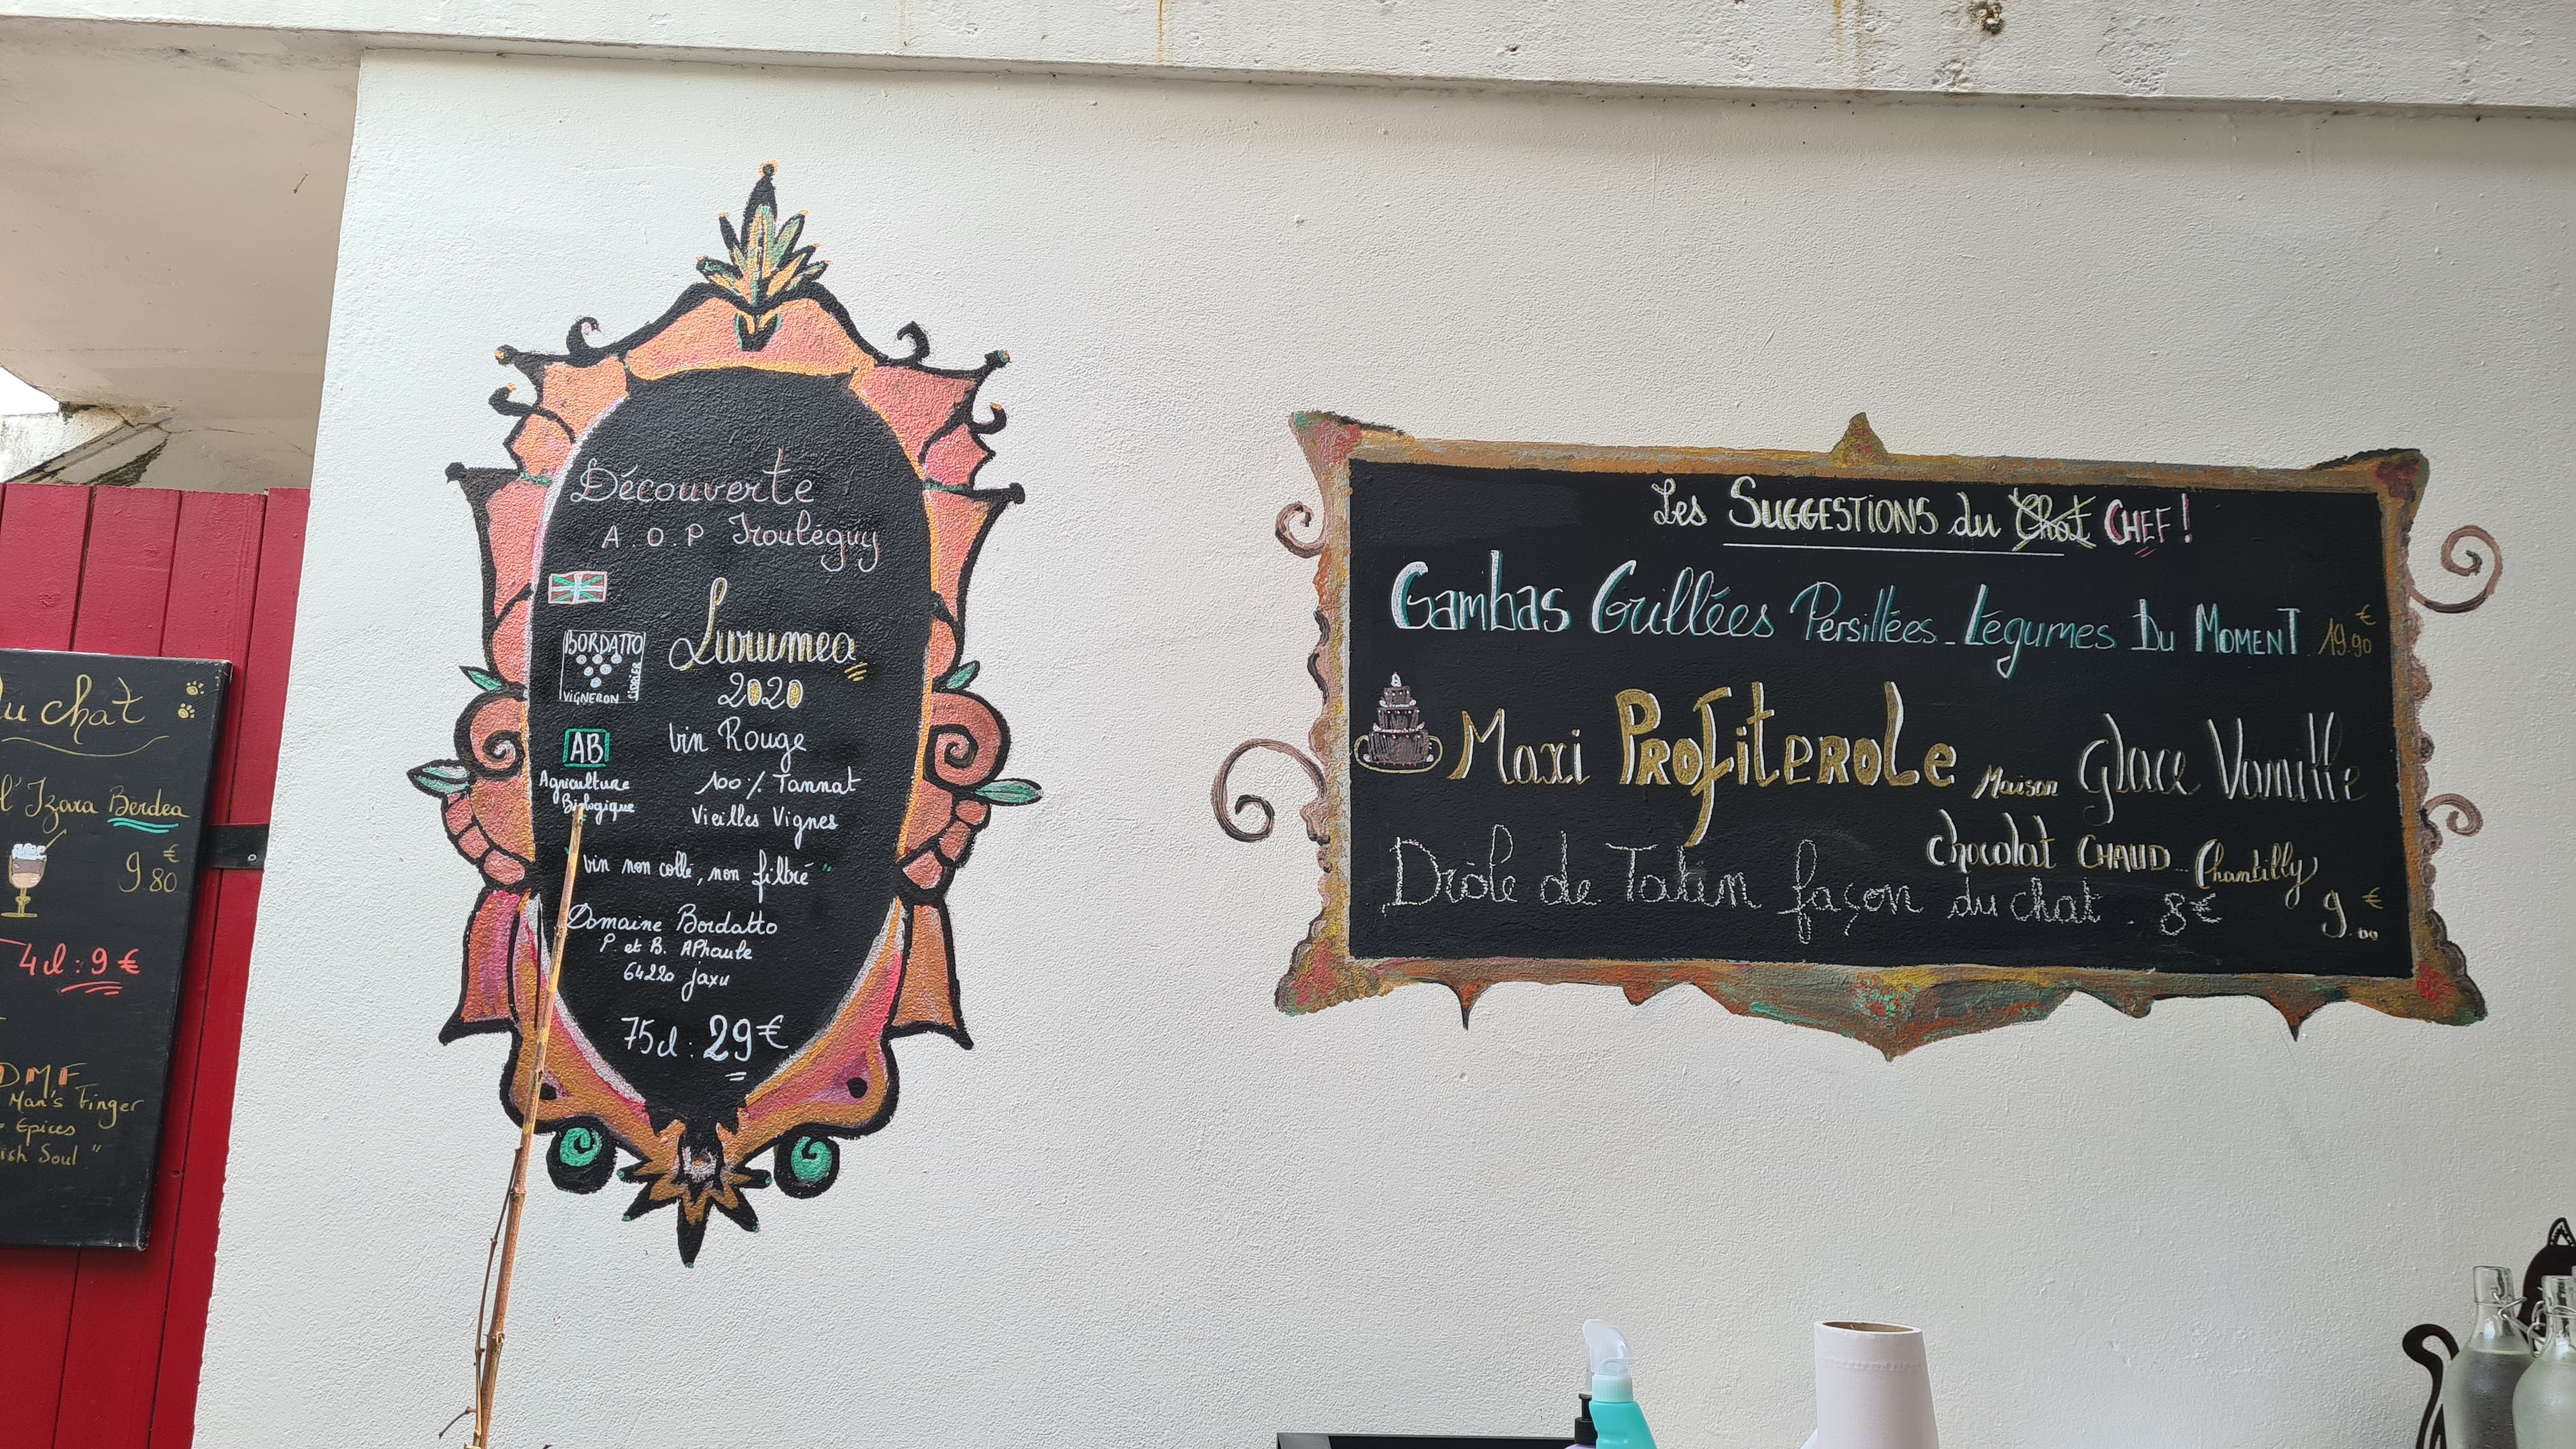 du chat
l'Izara Berdea
9 €
80
4cl : 9 €
D M F
Man's Finger
Epices
ish Soul"
Découverte
A.O.P Irouléguy
Lurumea
2020
BORDATTO
VIGNERON
CIDRIER
Vin Rouge
AB
Agriculture
Biologique
100% Tannat
Vieilles Vignes
"Vin non collé, non filtré"
Domaine Bordatto
P. et B. APhaule
64220 Jaxu
75cl : 29€
Les SUGGESTIONS du Chat CHEF !
Gambas Grillées Persillées_Légumes Du MOMENT 19.90 €
Maxi PRoFitERoLe Maison Glace Vanille
chocolat CHAUD.. Chantilly
9.00 €
Drôle de Tatin façon du chat. 8€